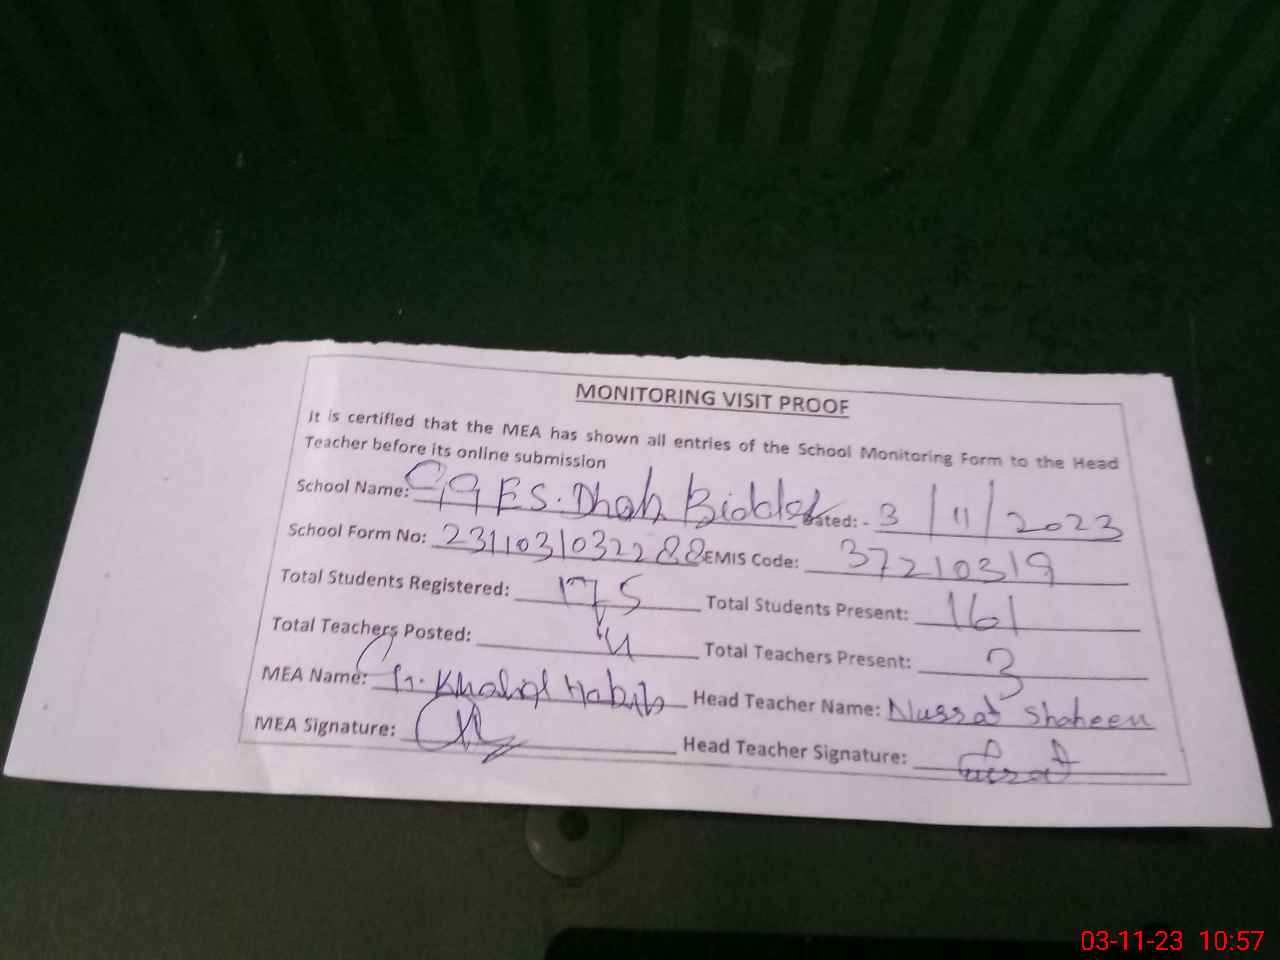 MONITORING VISIT PROOF
It is certified that the MEA has shown all entries of the School Monitoring Form to the Head
Teacher before its online submission
School Name: GGES. Dhab Dated: - 3/11/2023
School Form No: 2311031032288 EMIS Code: 37210319
Total Students Registered: 175 Total Students Present: 161
Total Teachers Posted: 4 Total Teachers Present: 3
MEA Name: Khalid Habib Head Teacher Name: Nussat Shaheen
MEA Signature: Head Teacher Signature:
03-11-23 10:57